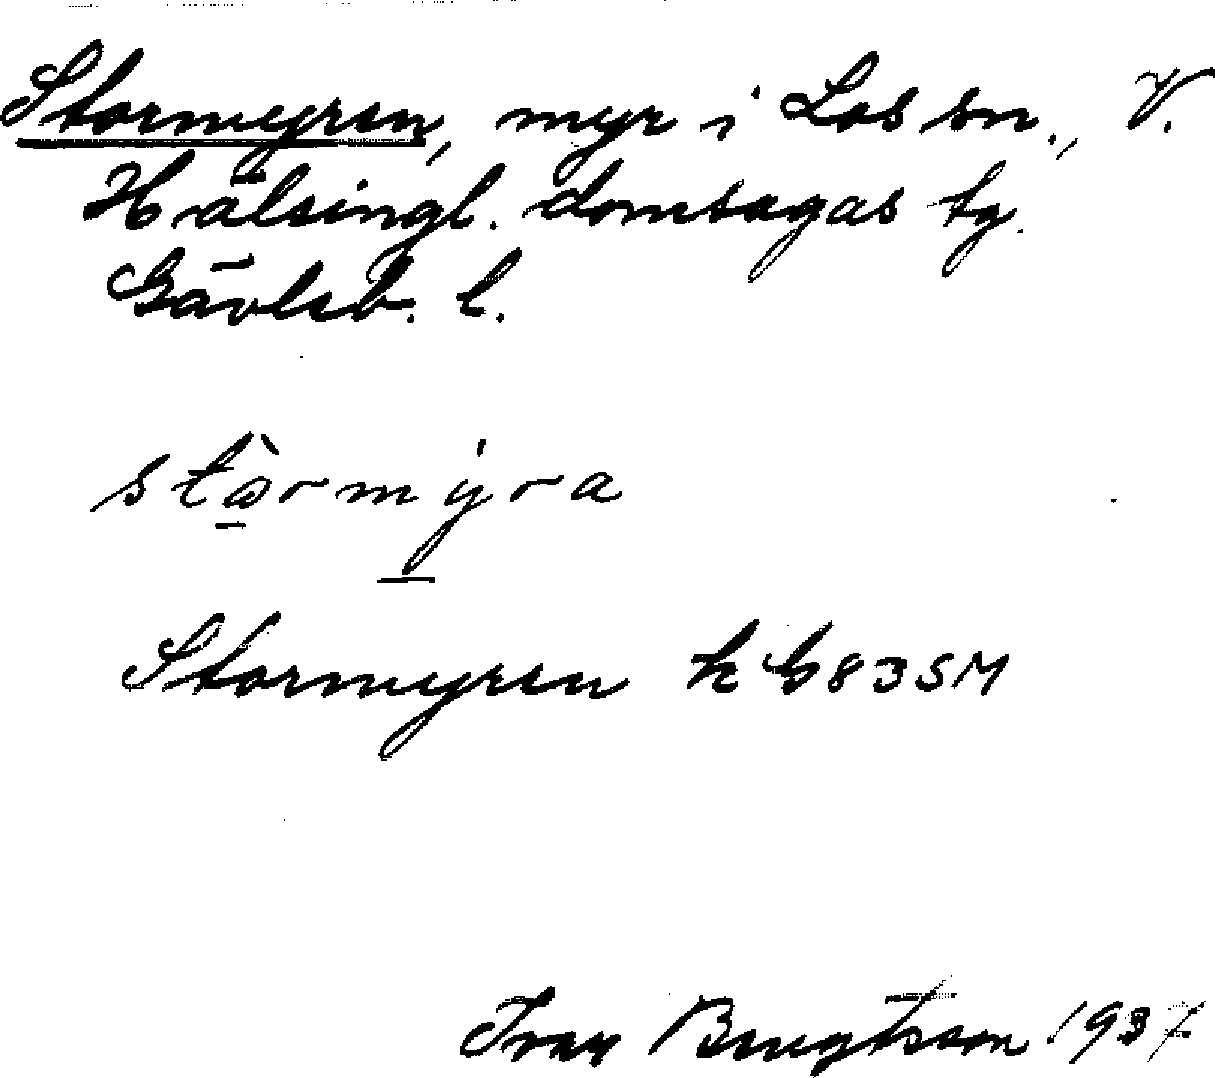 Stormyren, myr i Los sn., V.
Hälsingl. domsagas tg.
Gävleb. l.
stòrmýra
Stormyren k G83SM
Ivan Bengtsson 1937